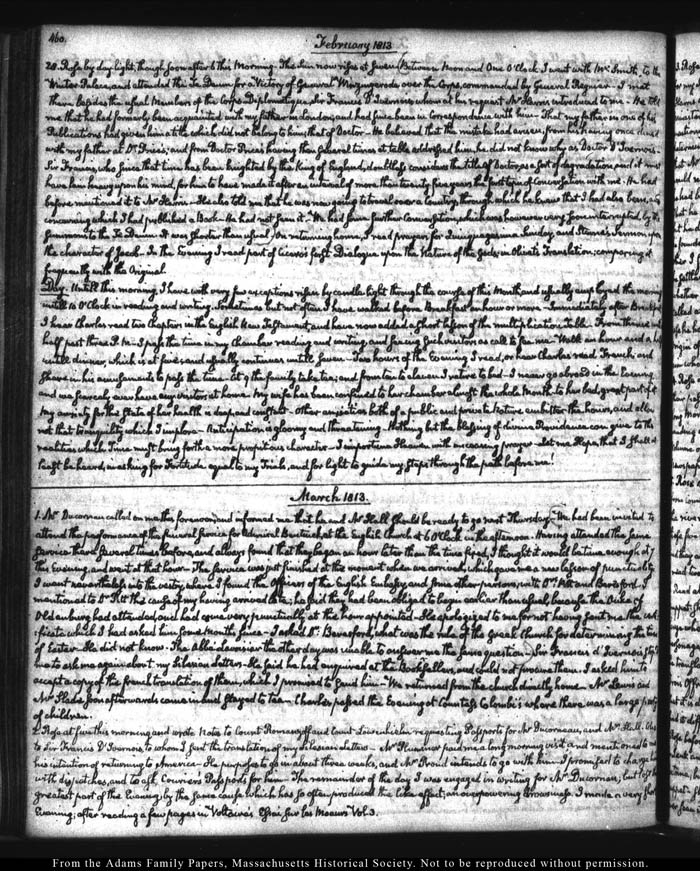 460.
February 1813
28. Rose by day light, though soon after 6 this Morning. The Sun now rises at Seven. Between Noon and One O'Clock I went with Mr Smith, to the
Winter Palace, and attended the Te Deum for a Victory of General Winzingerode over the Corps, commanded by General Regnier. I met
there besides the usual Members of the Corps Diplomatique, Sir Francis D'Ivernois whom at his request Mr Harris introduced to me. He told
me that he had formerly been acquainted with my father in London, and had since been in Correspondence with him. That my father in one of his
Publications had given him a title which did not belong to him; that of Doctor. He believed that the mistake had arisen, from his having once dined
with my father at Dr Price's, and from Doctor Price's having then several times at table addressed him, he did not know why as Doctor D'Ivernois.
Sir Francis, who since that time has been knighted by the King of England, doubtless considers the title of Doctor, as a sort of degradation, and it must
have hung heavy upon his mind, for him to have made it after an interval of more than twenty five years the first topic of Conversation with me. He had
before mentioned it to Mr Harris. He also told me that he was now going to travel over a Country, through which he knew that I had also been, and
concerning which I had published a Book. He had not seen it. We had some further Conversation, which was however very soon interrupted by the
summons to the Te Deum. It was shorter than usual. On returning home, I read prayers for Quinquagesima Sunday, and Sterne's Sermon upon
the character of Jacob. In the Evening I read part of Cicero's first Dialogue upon the Nature of the Gods, in Olivet's Translation; comparing it
frequently with the Original.
Day. Untill this morning, I have with very few exceptions risen by candle light through the course of this Month and usually employed the morning
untill 10 O'Clock in reading and writing. Sometimes but not often I have walked before Breakfast an hour or more. Immediately after Breakfast
I hear Charles read two Chapters in the English New Testament, and have now added a short lesson of the multiplication Table. From thence until
half past three P.M. I pass the time in my chamber reading and writing, and seeing such visitors, as call to see me. Walk an hour and a half
untill dinner, which is at five and usually continues untill Seven. Two hours of the Evening I read, or hear Charles read French; and
share in his amusements to pass the time. At 9 the family take tea; and from ten to eleven I retire to bed. I never go abroad in the Evening
and we scarcely ever have any visitors at home. My wife has been confined to her chamber almost the whole Month—to her bed, great part of it.
My anxiety for the State of her health is deep, and constant. Other anxieties both of a public and private Nature embitter the hours, and allow
not that tranquility which I implore. Anticipation is gloomy and threatening. Nothing but the blessing of divine Providence can give to the
realities which Time must bring forth a more propitious character. I importune Heaven with unceasing prayer. Let me Hope, that I shall at
least be heard, in asking for Fortitude equal to my Trials, and for light to guide my steps through the path before me!
March 1813.
1. Mr Ducorneau called on me this forenoon, and informed me that he and Mr Hall should be ready to go next Thursday. We had been invited to
attend the performance of the funeral Service for Admiral Bentinck, at the English Church at 6 O'Clock in the afternoon. Having attended the same
Service there several times before, and always found that they began an hour later than the time fixed, I thought it would be time enough at 7
this Evening, and went at that hour. The Service was just finished at the moment when we arrived; which gave me a new lesson of punctuality.
I went nevertheless into the vestry, where I found the Officers of the English Embassy, and some other persons, with Drs Pitt and Beresford. I
mentioned to Dr Pitt this cause of my having arrived late; he said they had been obliged to begin earlier than usual, because the Duke of
Oldenburg had attended, and had come very punctually at the hour appointed. He apologized to me for not having sent me the certi-
ficate which I had asked him some months since. I asked Dr Beresford, what was the rule of the Greek Church for determining the time
of Easter. He did not know. The Abbé the other day was unable to answer me the same question. Sir Francis d'Ivernois spoke
to me again about my Silesian Letters. He said he had enquired at the Booksellers, and could not procure them. I asked him to
accept a copy of the french translation of them, which I promised to send him. We returned from the church directly home. Mr Lewis and
Mr Slade soon afterwards came in and stayed to tea. Charles passed the Evening at Countess Colombi's where there was a large party
of children.
2. Rose at five this morning and wrote Notes to Count Romanzoff and Count requesting Passports for Mr Ducorneau, and Mr Hall. Also
to Sir Francis D'Ivernois, to whom I sent the translation of my Silesian Letters. Mr Plummer paid me a long morning visit and mentioned to me
his intention of returning to America. He purposes to go in about three weeks, and Mr Proud intends to go with him. I promised to charge him
with dispatches, and to ask Couriers Passports for him. The remainder of the day I was engaged in writing for Mr Ducorneau, but lost the
greatest part of the Evening, by the same cause which has so often produced the like effect; an overpowering drowsiness. I made a very short
Evening; after reading a few pages in Voltaire's Essai sur les Moeurs Vol. 3.
From the Adams Family Papers, Massachusetts Historical Society. Not to be reproduced without permission.